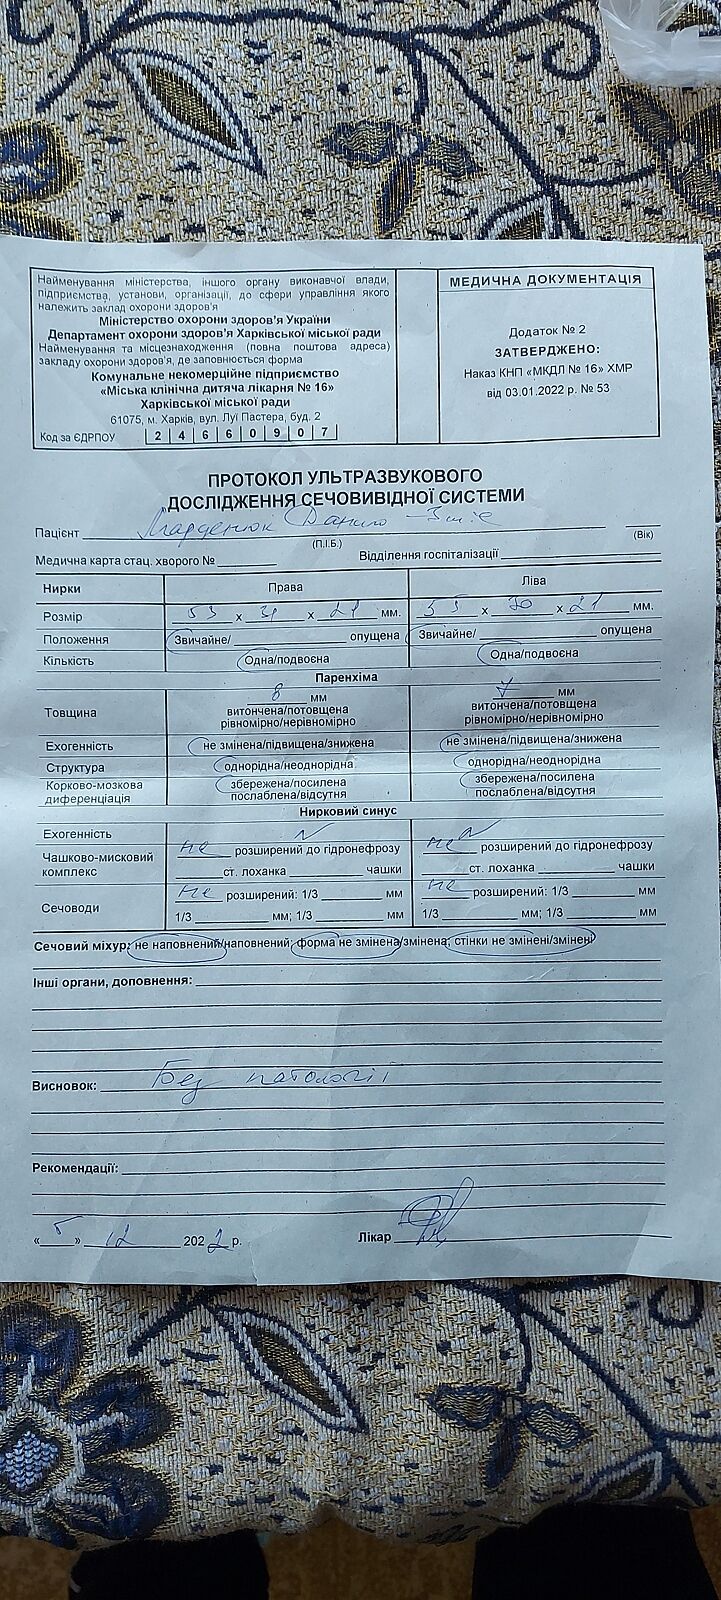 Найменування міністерства, іншого органу виконавчої влади,
підприємства, установи, організації, до сфери управління якого
належить заклад охорони здоров'я
Міністерство охорони здоров'я України
Департамент охорони здоров'я Харківської міської ради
Найменування та місцезнаходження (повна поштова адреса)
закладу охорони здоров'я, де заповнюється форма
Комунальне некомерційне підприємство
«Міська клінічна дитяча лікарня № 16»
Харківської міської ради
61075, м. Харків, вул. Луї Пастера, буд. 2
Код за ЄДРПОУ 2 4 6 6 0 9 0 7
МЕДИЧНА ДОКУМЕНТАЦІЯ
Додаток № 2
ЗАТВЕРДЖЕНО:
Наказ КНП «МКДЛ № 16» ХМР
від 03.01.2022 р. № 53
ПРОТОКОЛ УЛЬТРАЗВУКОВОГО
ДОСЛІДЖЕННЯ СЕЧОВИВІДНОЇ СИСТЕМИ
Пацієнт Данило
(П.І.Б.) (Вік)
Медична карта стац. хворого № Відділення госпіталізації
Нирки Права Ліва
Розмір 53 x 31 x 21 мм. 55 x 30 x 21 мм.
Положення Звичайне/ опущена Звичайне/ опущена
Кількість Одна/подвоєна Одна/подвоєна
Паренхіма
Товщина 8 мм 7 мм
витончена/потовщена витончена/потовщена
рівномірно/нерівномірно рівномірно/нерівномірно
Ехогенність не змінена/підвищена/знижена не змінена/підвищена/знижена
Структура однорідна/неоднорідна однорідна/неоднорідна
Корково-мозкова диференціація збережена/посилена збережена/посилена
послаблена/відсутня послаблена/відсутня
Нирковий синус
Ехогенність N N
Чашково-мисковий комплекс не розширений до гідронефрозу не розширений до гідронефрозу
ст. лоханка чашки ст. лоханка чашки
Сечоводи не розширений: 1/3 мм не розширений: 1/3 мм
1/3 мм; 1/3 мм 1/3 мм; 1/3 мм
Сечовий міхур: не наповнений/наповнений; форма не змінена/змінена; стінки не змінені/змінені
Інші органи, доповнення:
Висновок: Без патології
Рекомендації:
«5» 12 2022 р. Лікар